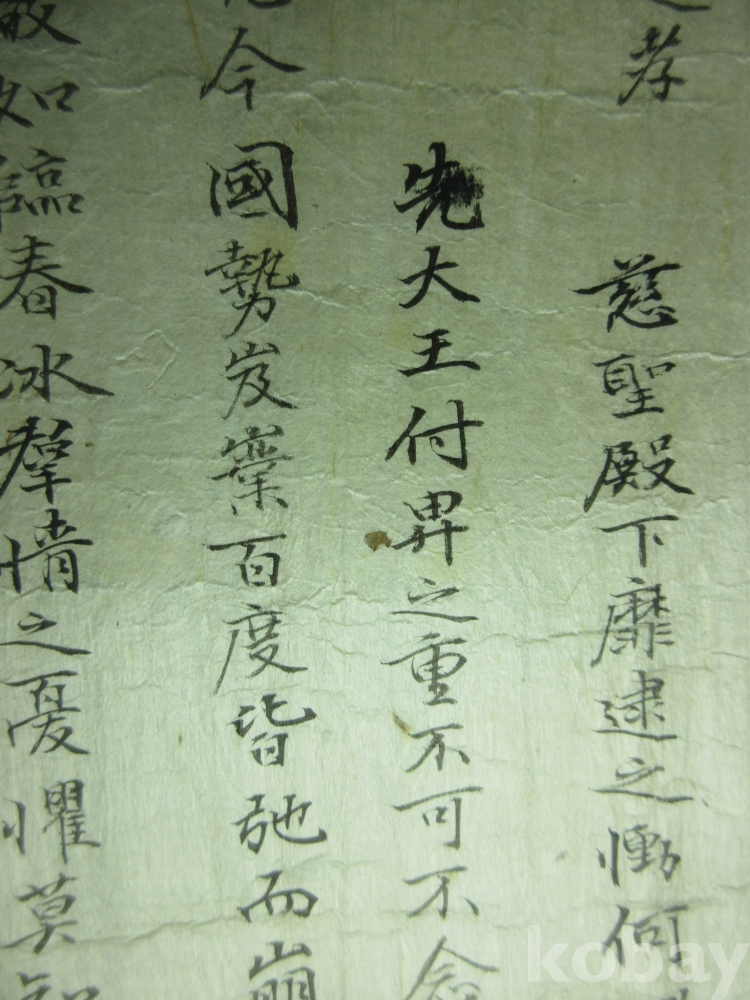 孝
慈聖殿下靡逮之慟何
先大王付畀之重不可不念
今國勢岌嶪百度皆弛而崩
如臨春冰羣情之憂懼莫知
kobay